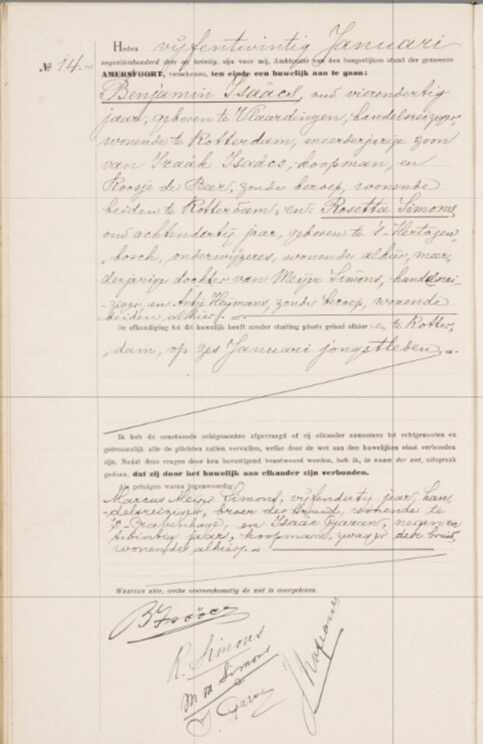 Heden vijfentwintig Januari
No 14.
negentienhonderd zijn voor mij, Ambtenaar van den burgerlijken stand der gemeente
AMERSFOORT, verschenen, ten einde een huwelijk aan te gaan:
Benjamin Isaäcs, oud vierendertig
jaar, geboren te Vlaardingen, handelsreiziger,
wonende te Rotterdam, meerderjarige zoon
van Izaäk Isaäcs, koopman, en
Roosje de Beer, zonder beroep, wonende
beiden te Rotterdam, en Rosetta Simons,
oud achtendertig jaar, geboren te 's-Hertogen-
bosch, onderwijzeres, wonende alhier, meer-
derjarige dochter van Meijer Simons, handelsrei-
ziger, en Antje Heijmans, zonder beroep, wonende
beiden alhier.
De afkondiging tot dit huwelijk heeft zonder stuiting plaats gehad alhier en te Rotter-
dam, op zes Januari jongstleden.
Ik heb de aanstaande echtgenooten afgevraagd of zij elkander aannemen tot echtgenooten en
getrouwelijk alle de plichten zullen vervullen, welke door de wet aan den huwelijken staat verbonden
zijn. Nadat deze vragen door hen bevestigend beantwoord werden, heb ik, in naam der wet, uitspraak
gedaan, dat zij door het huwelijk aan elkander zijn verbonden.
Als getuigen waren tegenwoordig:
Marcus Meijer Simons, vijfendertig jaar, han-
delsreiziger, broer der bruid, wonende te
's-Gravenhage, en Isaac negenen
jaar, koopman, zwager der bruid,
wonende alhier.
Waarvan akte, welke overeenkomstig de wet is voorgelezen.
B Isaäcs
R. Simons
M M Simons